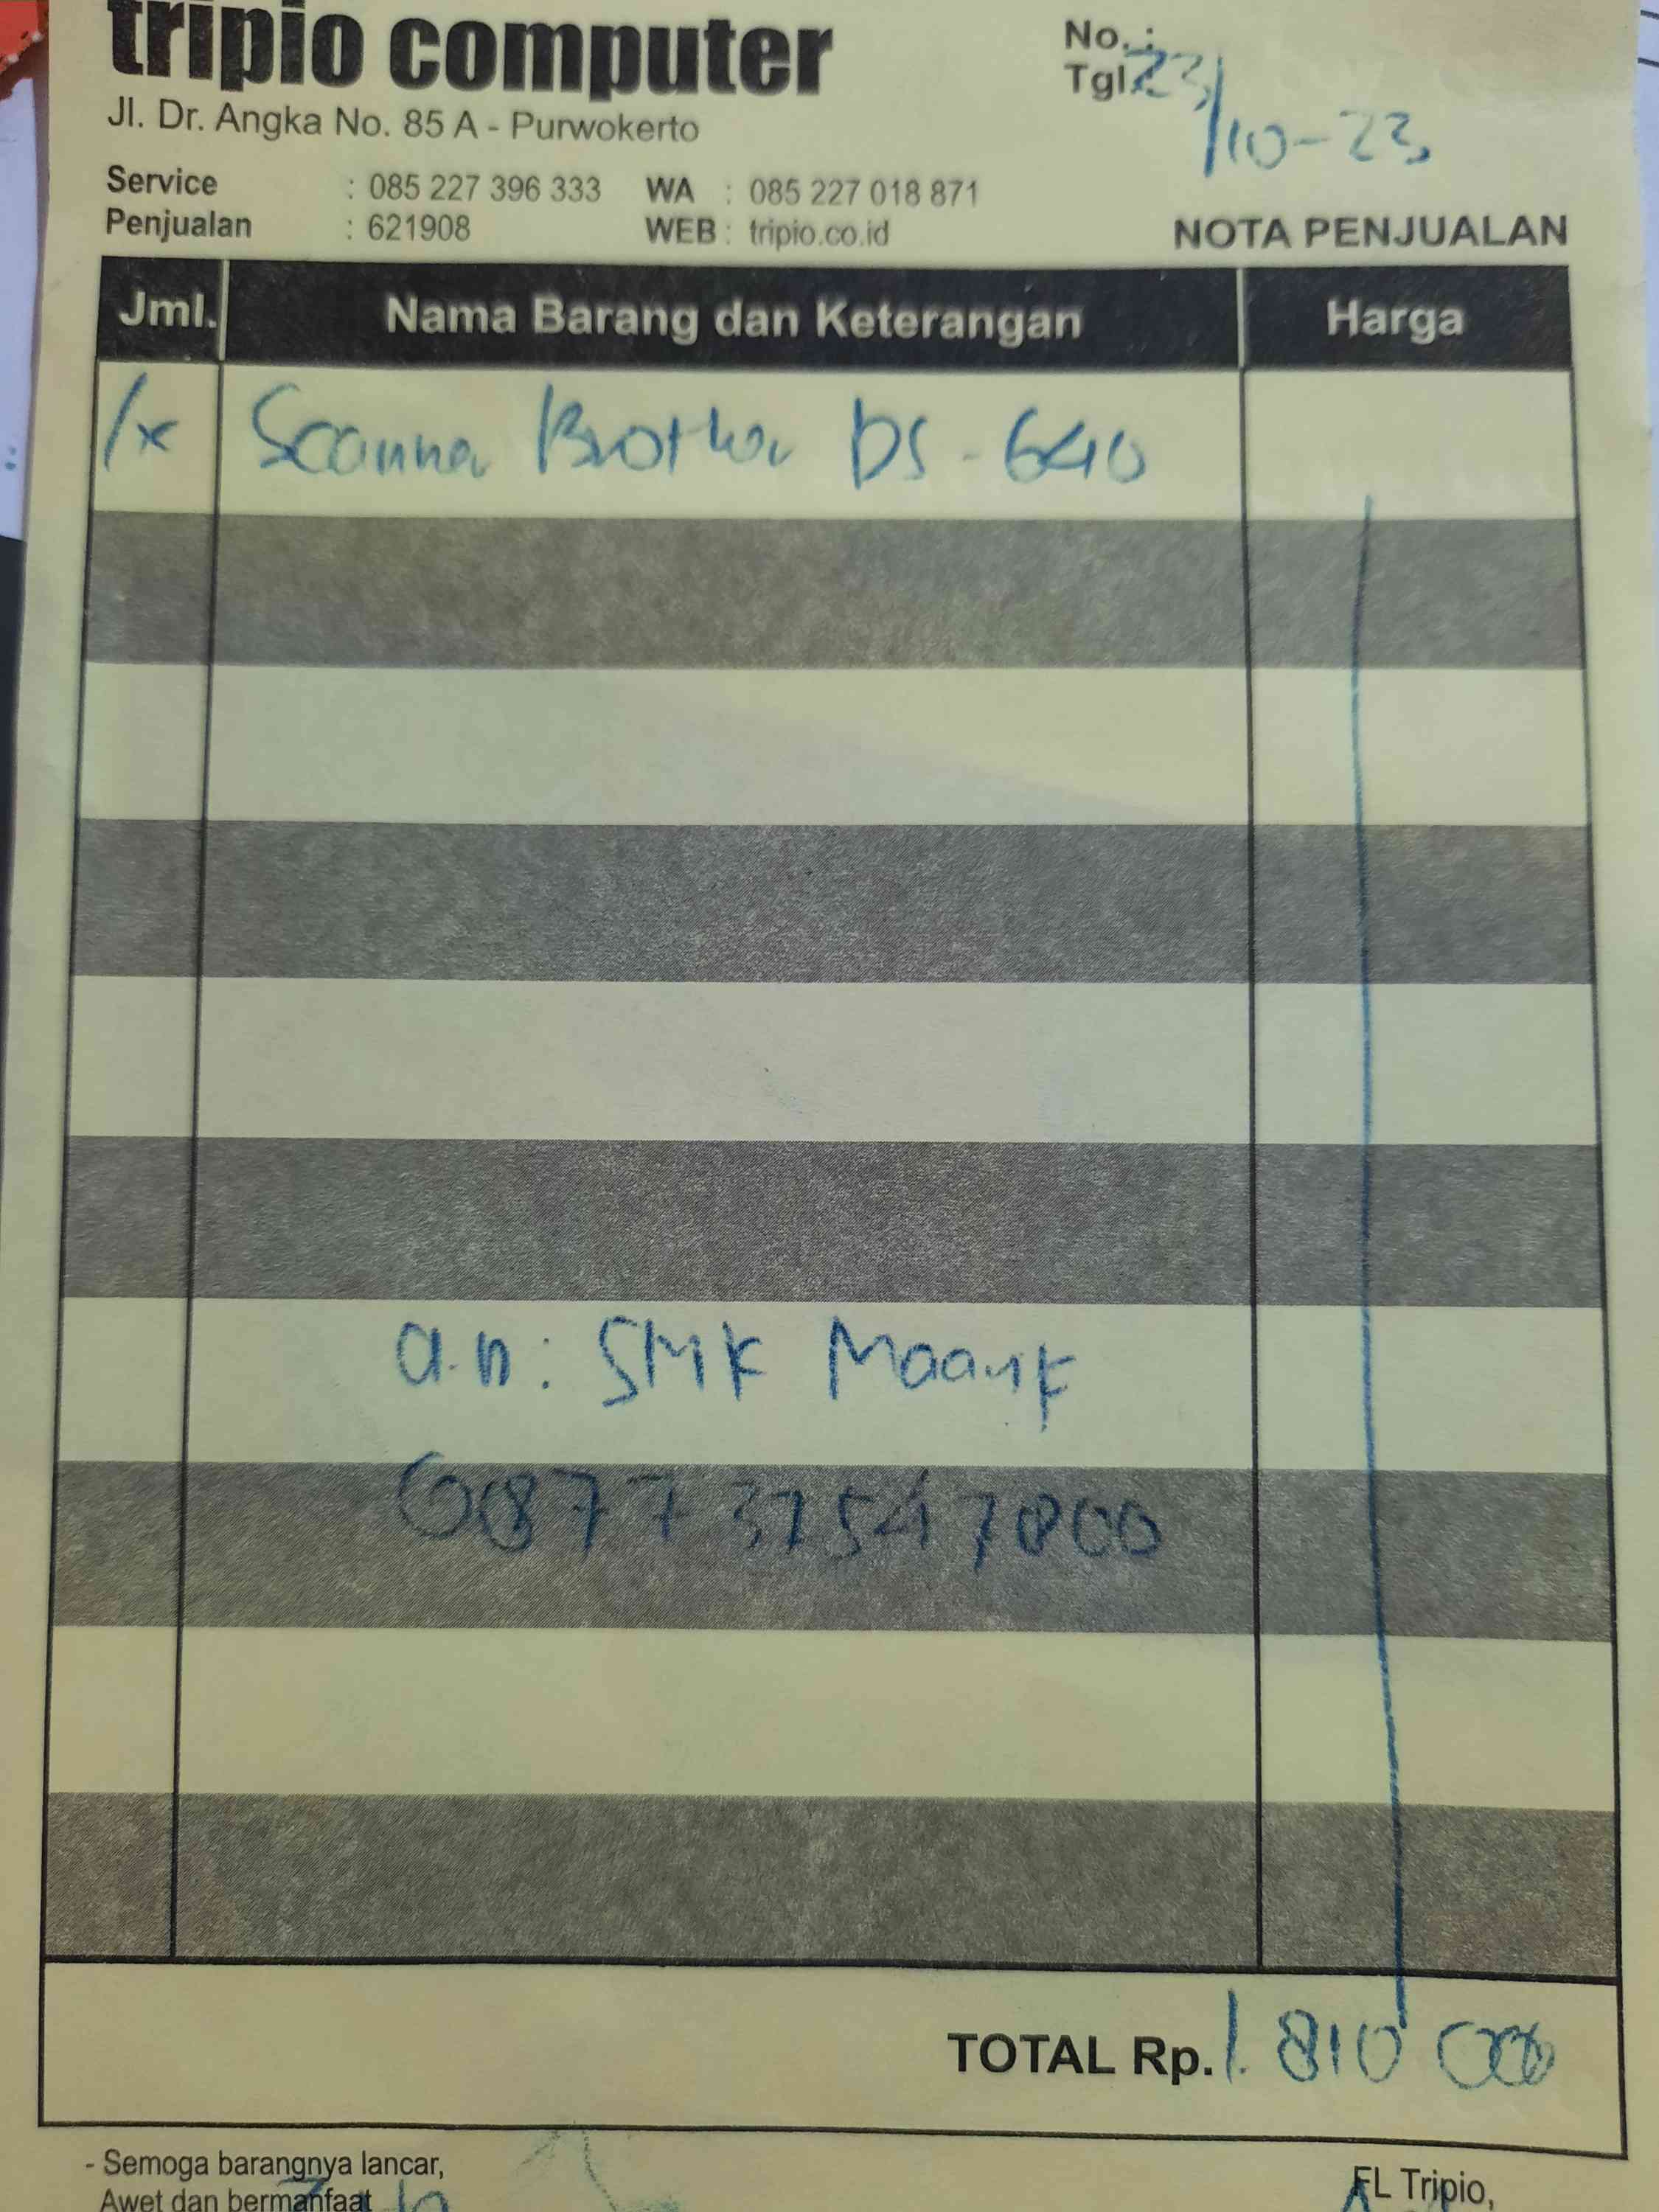 tripio computer
No. :
Tgl. 23/10-23
Jl. Dr. Angka No. 85 A - Purwokerto
Service : 085 227 396 333 WA : 085 227 018 871
Penjualan : 621908 WEB : tripio.co.id
NOTA PENJUALAN
Jml. Nama Barang dan Keterangan Harga
1x Scanner Brother DS-640
a.n: SMK Maarif
087731547800
TOTAL Rp. 1.810 000
- Semoga barangnya lancar,
Awet dan bermanfaat
FL Tripio,